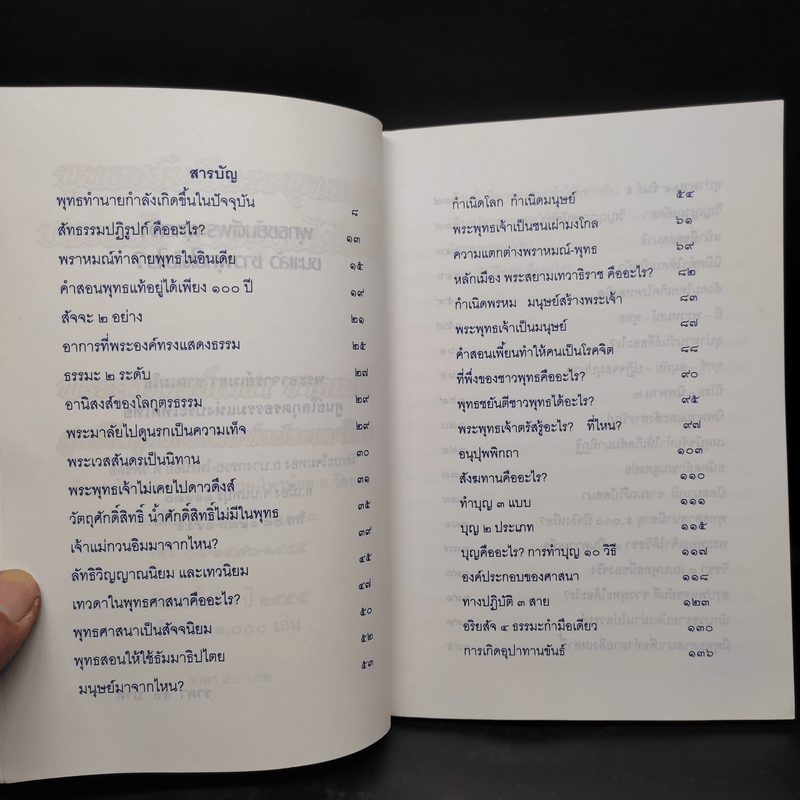 สารบัญ
พุทธทำนายกำลังเกิดขึ้นในปัจจุบัน ๘
สัทธรรมปฏิรูปก์ คืออะไร? ๑๓
พราหมณ์ทำลายพุทธในอินเดีย ๑๕
คำสอนพุทธแท้อยู่ได้เพียง ๑๐๐ ปี ๑๙
สัจจะ ๒ อย่าง ๒๑
อาการที่พระองค์ทรงแสดงธรรม ๒๕
ธรรมะ ๒ ระดับ ๒๗
อานิสงส์ของโลกุตรธรรม ๒๙
พระมาลัยไปดูนรกเป็นความเท็จ ๒๙
พระเวสสันดรเป็นนิทาน ๓๐
พระพุทธเจ้าไม่เคยไปดาวดึงส์ ๓๑
วัตถุศักดิ์สิทธิ์ น้ำศักดิ์สิทธิ์ไม่มีในพุทธ ๓๕
เจ้าแม่กวนอิมมาจากไหน? ๓๙
ลัทธิวิญญาณนิยม และเทวนิยม ๔๕
เทวดาในพุทธศาสนาคืออะไร? ๔๗
พุทธศาสนาเป็นสัจจนิยม ๕๐
พุทธสอนให้ใช้ธัมมาธิปไตย ๕๒
มนุษย์มาจากไหน? ๕๓
กำเนิดโลก กำเนิดมนุษย์ ๕๔
พระพุทธเจ้าเป็นชนเผ่ามงโกล ๖๑
ความแตกต่างพราหมณ์-พุทธ ๖๙
หลักเมือง พระสยามเทวาธิราช คืออะไร? ๘๒
กำเนิดพรหม มนุษย์สร้างพระเจ้า ๘๓
พระพุทธเจ้าเป็นมนุษย์ ๘๗
คำสอนเพี้ยนทำให้คนเป็นโรคจิต ๘๘
ที่พึ่งของชาวพุทธคืออะไร? ๙๐
พุทธชยันตีชาวพุทธได้อะไร? ๙๕
พระพุทธเจ้าตรัสรู้อะไร? ที่ไหน? ๙๗
อนุปุพพิกถา ๑๐๓
สังฆทานคืออะไร? ๑๑๐
ทำบุญ ๓ แบบ ๑๑๑
บุญ ๒ ประเภท ๑๑๕
บุญคืออะไร? การทำบุญ ๑๐ วิธี ๑๑๗
องค์ประกอบของศาสนา ๑๑๘
ทางปฏิบัติ ๓ สาย ๑๒๓
อริยสัจ ๔ ธรรมะกำมือเดียว ๑๓๐
การเกิดอุปาทานขันธ์ ๑๓๖